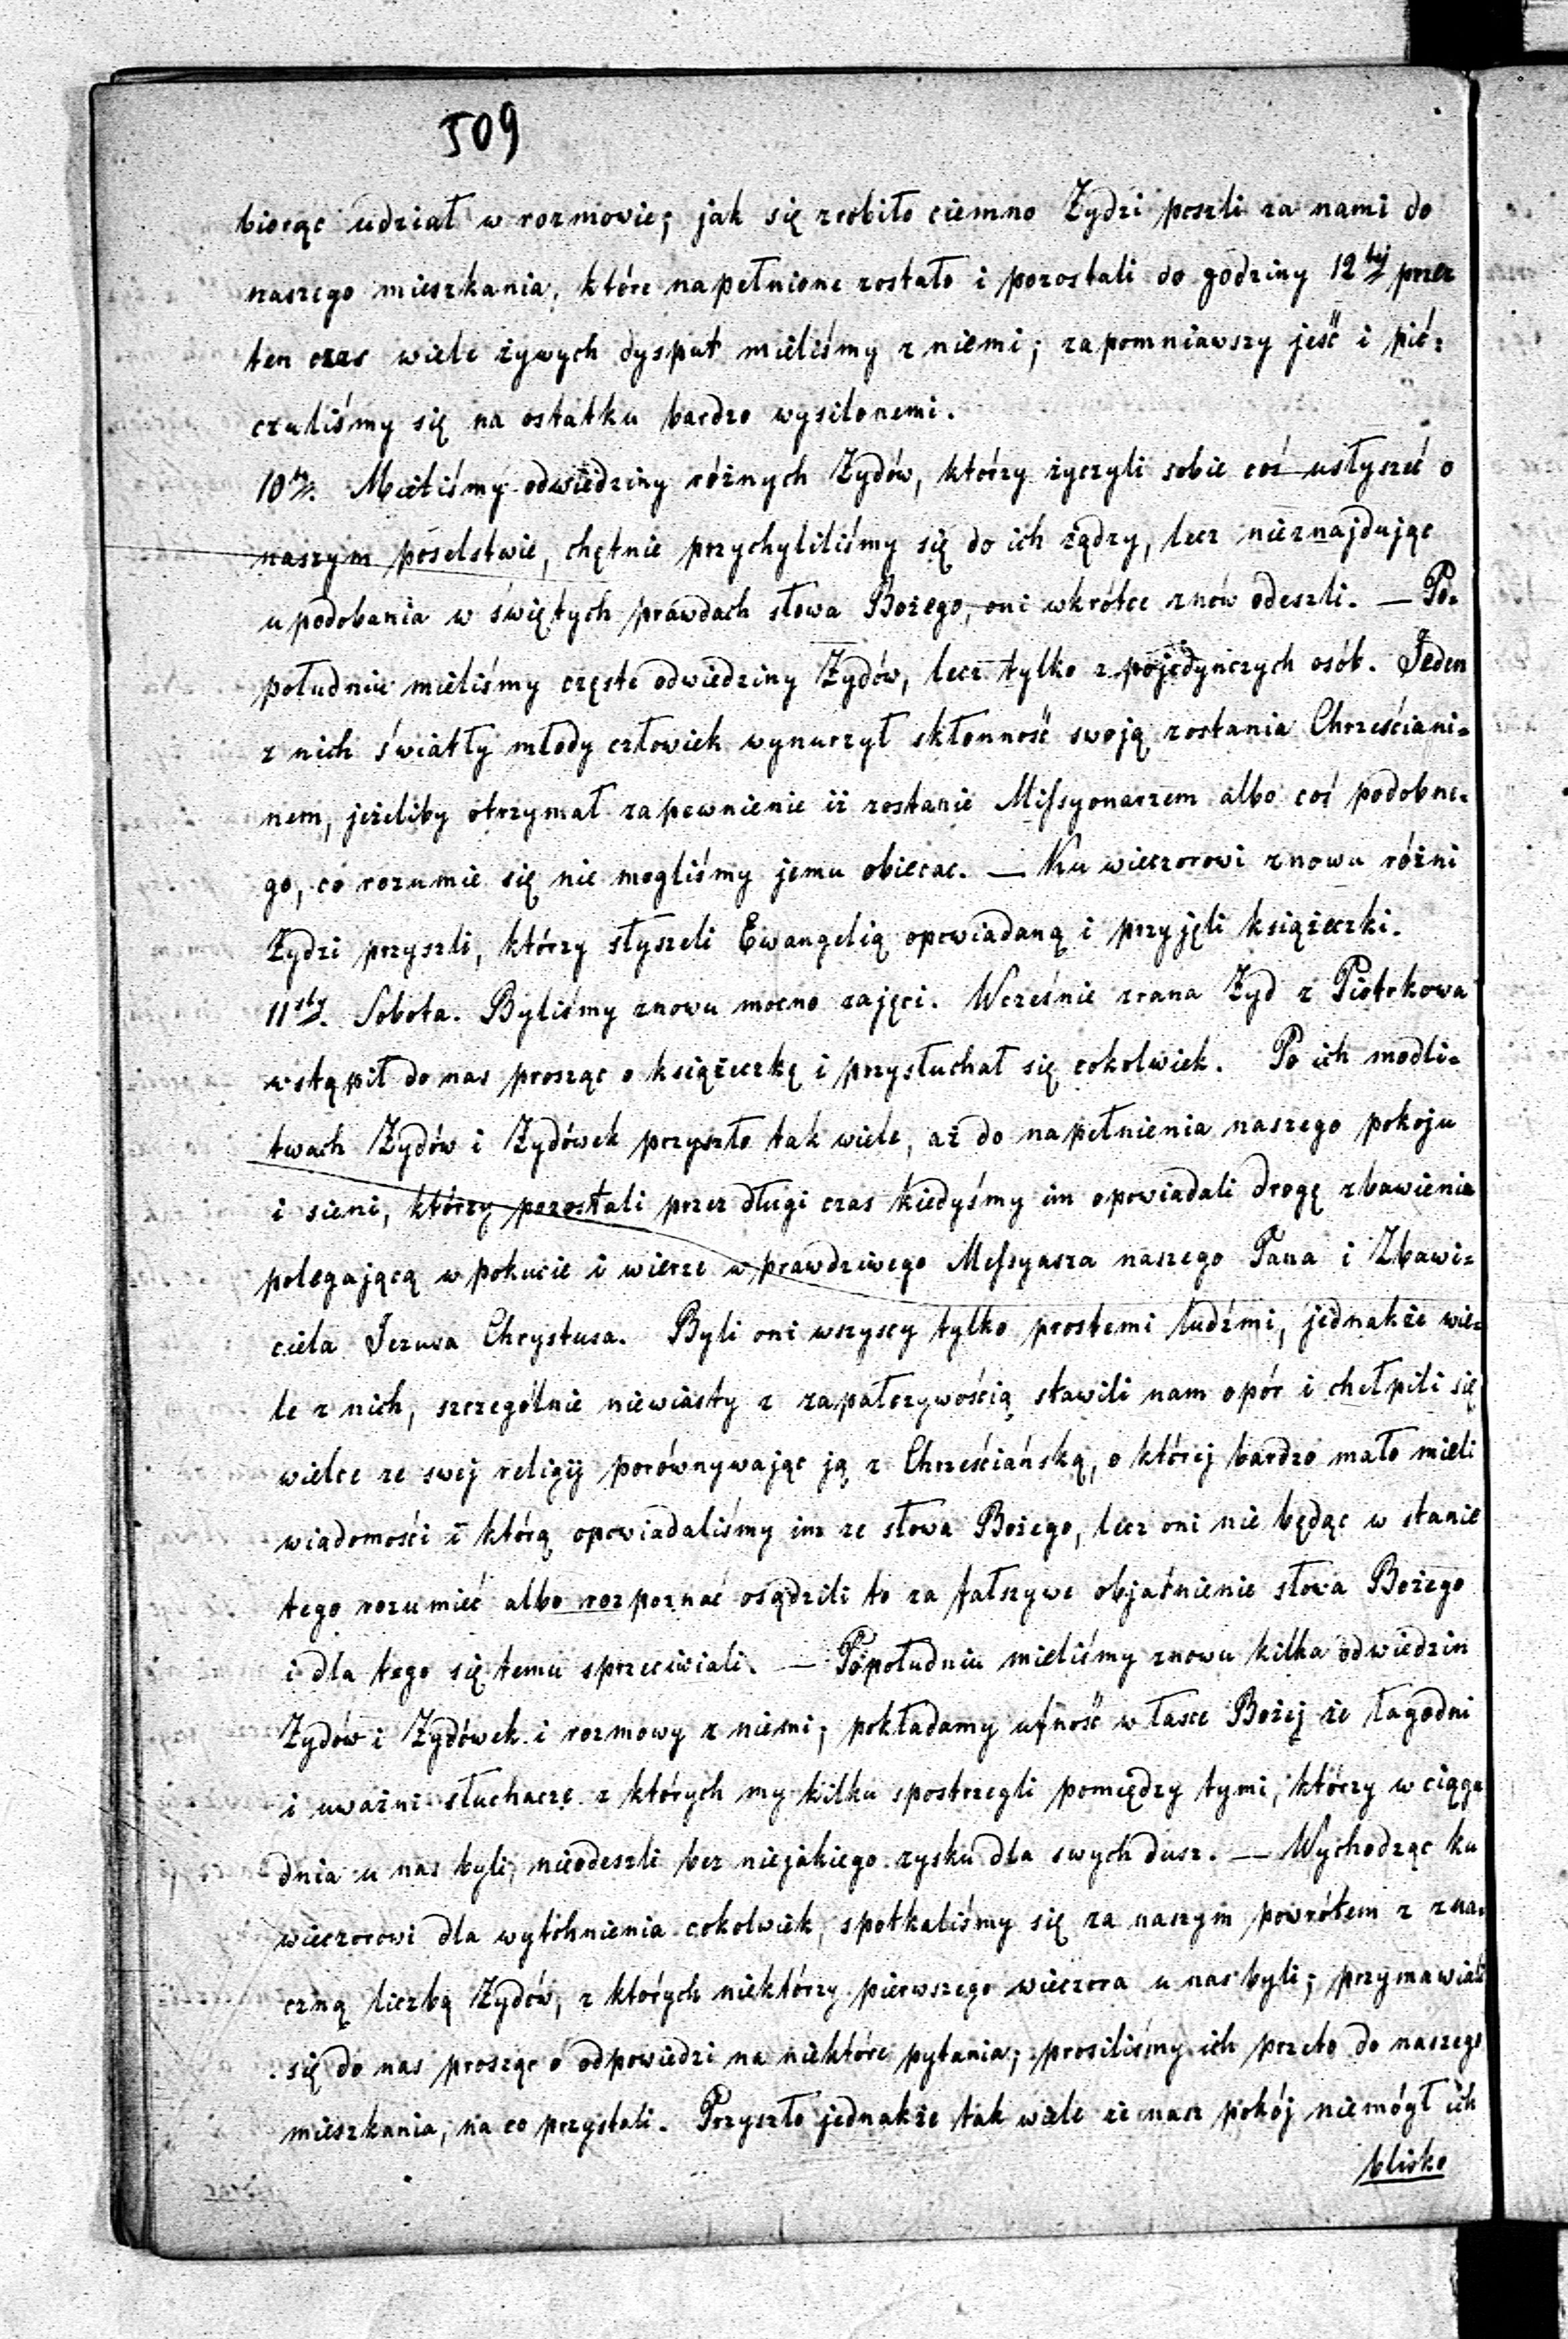 509
biorąc udział w rozmowie; jak się zrobiło ciemno Żydzi poszli za nami do
naszego mieszkania, które napełnione zostało i pozostali do godziny 12tej przez
ten czas wiele żywych dysput mieliśmy z niemi; zapomniawszy jeść i pić:
czuliśmy się na ostatku bardzo wysilonemi.
10ty. Mieliśmy odwiedziny różnych Żydów, którzy życzyli sobie coś usłyszeć o
naszym poselstwie, chętnie przychyliliśmy się do ich żądzy, lecz nieznajdując
upodobania w świętych prawdach słowa Bożego, oni wkrótce znów odeszli. — Po-
południu mieliśmy częste odwiedziny Żydów, lecz tylko z pojedyńczych osób. Jeden
z nich światły młody człowiek wynurzył skłonność swoją zostania Chrześciani-
nem, jeżeliby otrzymał zapewnienie iż zostanie Missyonarzem albo coś podobne-
go, co rozumie się nie mogliśmy jemu obiecac. — Ku wieczorowi znowu różni
Żydzi przyszli, którzy słyszeli Ewangelią opowiadaną i przyjęli książeczki.
11sty. Sobota. Byliśmy znowu mocno zajęci. Wcześnie zrana Żyd z Piotrkowa
wstąpił do nas prosząc o książeczkę i przysłuchał się cokolwiek. Po ich modli-
twach Żydów i Żydówek przyszło tak wiele, aż do napełnienia naszego pokoju
i sieni, którzy pozostali przez długi czas kiedyśmy im opowiadali drogę zbawienia
polegającą w pokucie i wierze w prawdziwego Messyasza naszego Pana i Zbawi-
ciela Jezusa Chrystusa. Byli oni wszyscy tylko prostemi ludźmi, jednakże wie-
le z nich, szczególnie niewiasty z zapałczywością stawili nam opór i chełpili się
wielce ze swej religij porównywając ją z Chrześciańską, o której bardzo mało mieli
wiadomości i którą opowiadaliśmy im ze słowa Bożego, lecz oni nie będąc w stanie
tego rozumieć albo rozpoznać osądzili to za fałszywe objaśnienie słowa Bożego
i dla tego się temu sprzeciwiali. — Popołudniu mieliśmy znowu kilka odwiedzin
Żydów i Żydówek i rozmowy z niemi; pokładamy ufność w łasce Bożej że łagodni
i uważni słuchacze z których my kilku spostrzegli pomiędzy tymi, którzy w ciągu
dnia u nas byli, nieodeszli bez niejakiego zysku dla swych dusz. — Wychodząc ku
wieczorowi dla wytchnienia cokolwiek, spotkaliśmy się za naszym powrótem z zna-
czną liczbą Żydów, z których niektórzy pierwszego wieczora u nas byli; przymawiali
się do nas prosząc o odpowiedzi na niektóre pytania; prosiliśmy ich przeto do naszego
mieszkania, na co przystali. Przyszło jednakże tak wiele że nasz pokój niemógł ich
blisko